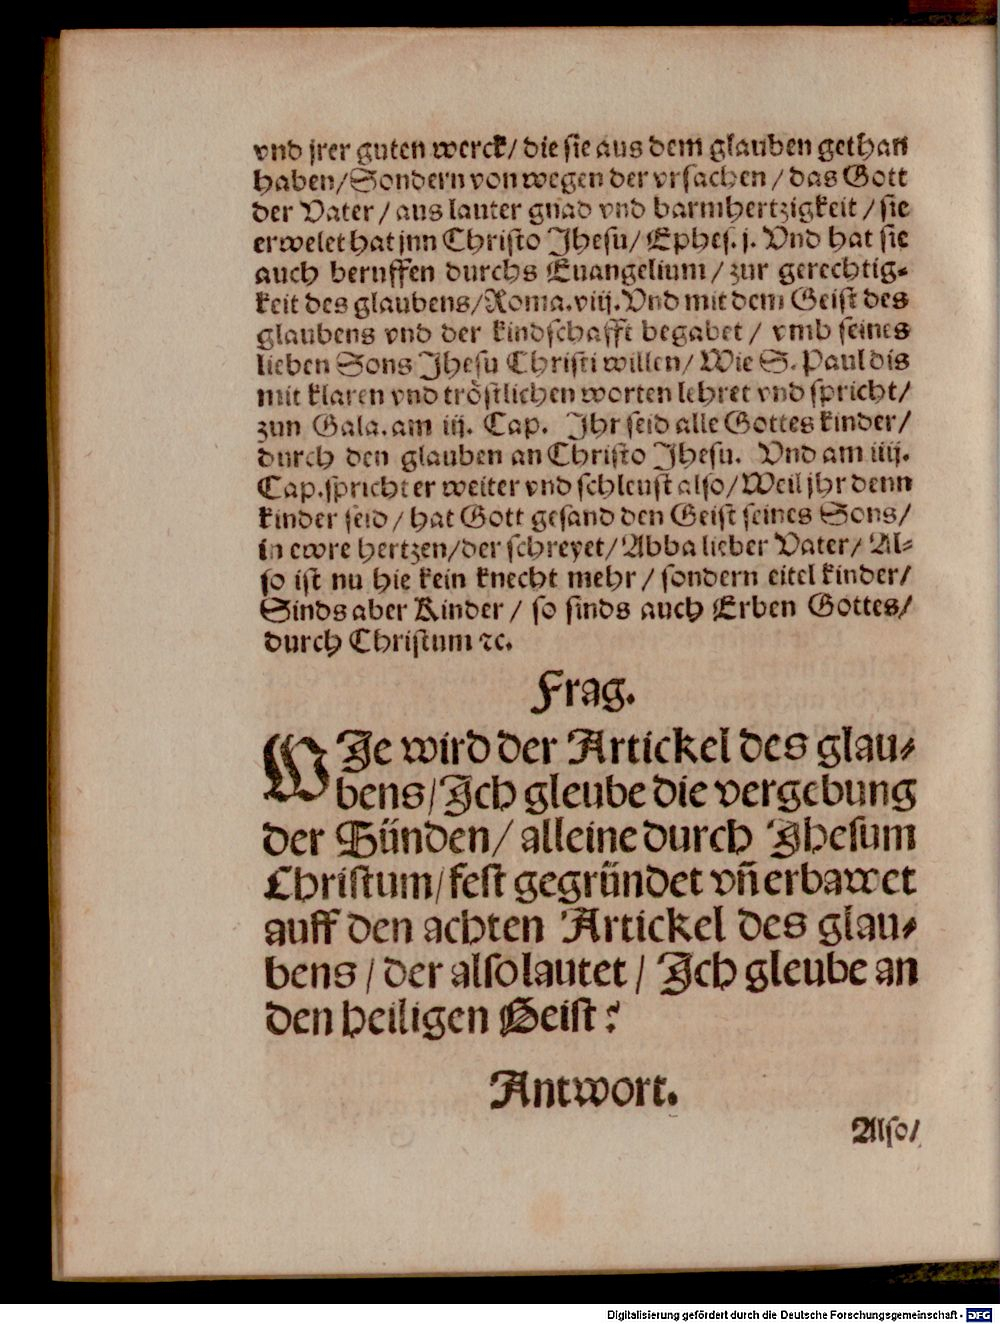 vnd jrer guten werck/ die sie aus dem glauben gethan
haben/Sondern von wegen der vrsachen / das Gott
der Vater / aus lauter gnad vnd barmhertzigkeit / sie
erwelet hat jnn Christo Jhesu/ Ephes. j. Vnd hat sie
auch beruffen durchs Euangelium / zur gerechtig-
keit des glaubens/Roma.viij.Vnd mit dem Geist des
glaubens vnd der kindschafft begabet / vmb seines
lieben Sons Jhesu Christi willen/ Wie S. Paul dis
mit klaren vnd tröstlichen worten lehret vnd spricht/
zun Gala. am iij. Cap. Jhr seid alle Gottes kinder/
durch den glauben an Christo Jhesu. Vnd am iiij.
Cap.spricht er weiter vnd schleust also/ Weil jhr denn
kinder seid / hat Gott gesand den Geist seines Sons/
in ewre hertzen/der schreyet/ Abba lieber Vater/ Al-
so ist nu hie kein knecht mehr / sondern eitel kinder/
Sinds aber Kinder / so sinds auch Erben Gottes/
durch Christum ꝛc.
Frag.
WJe wird der Artickel des glau-
bens/Jch gleube die vergebung
der Sünden/ alleine durch Jhesum
Christum/fest gegründet vñ erbawet
auff den achten Artickel des glau-
bens / der also lautet / Jch gleube an
den heiligen Geist?
Antwort.
Also/
Digitalisierung gefördert durch die Deutsche Forschungsgemeinschaft - DFG